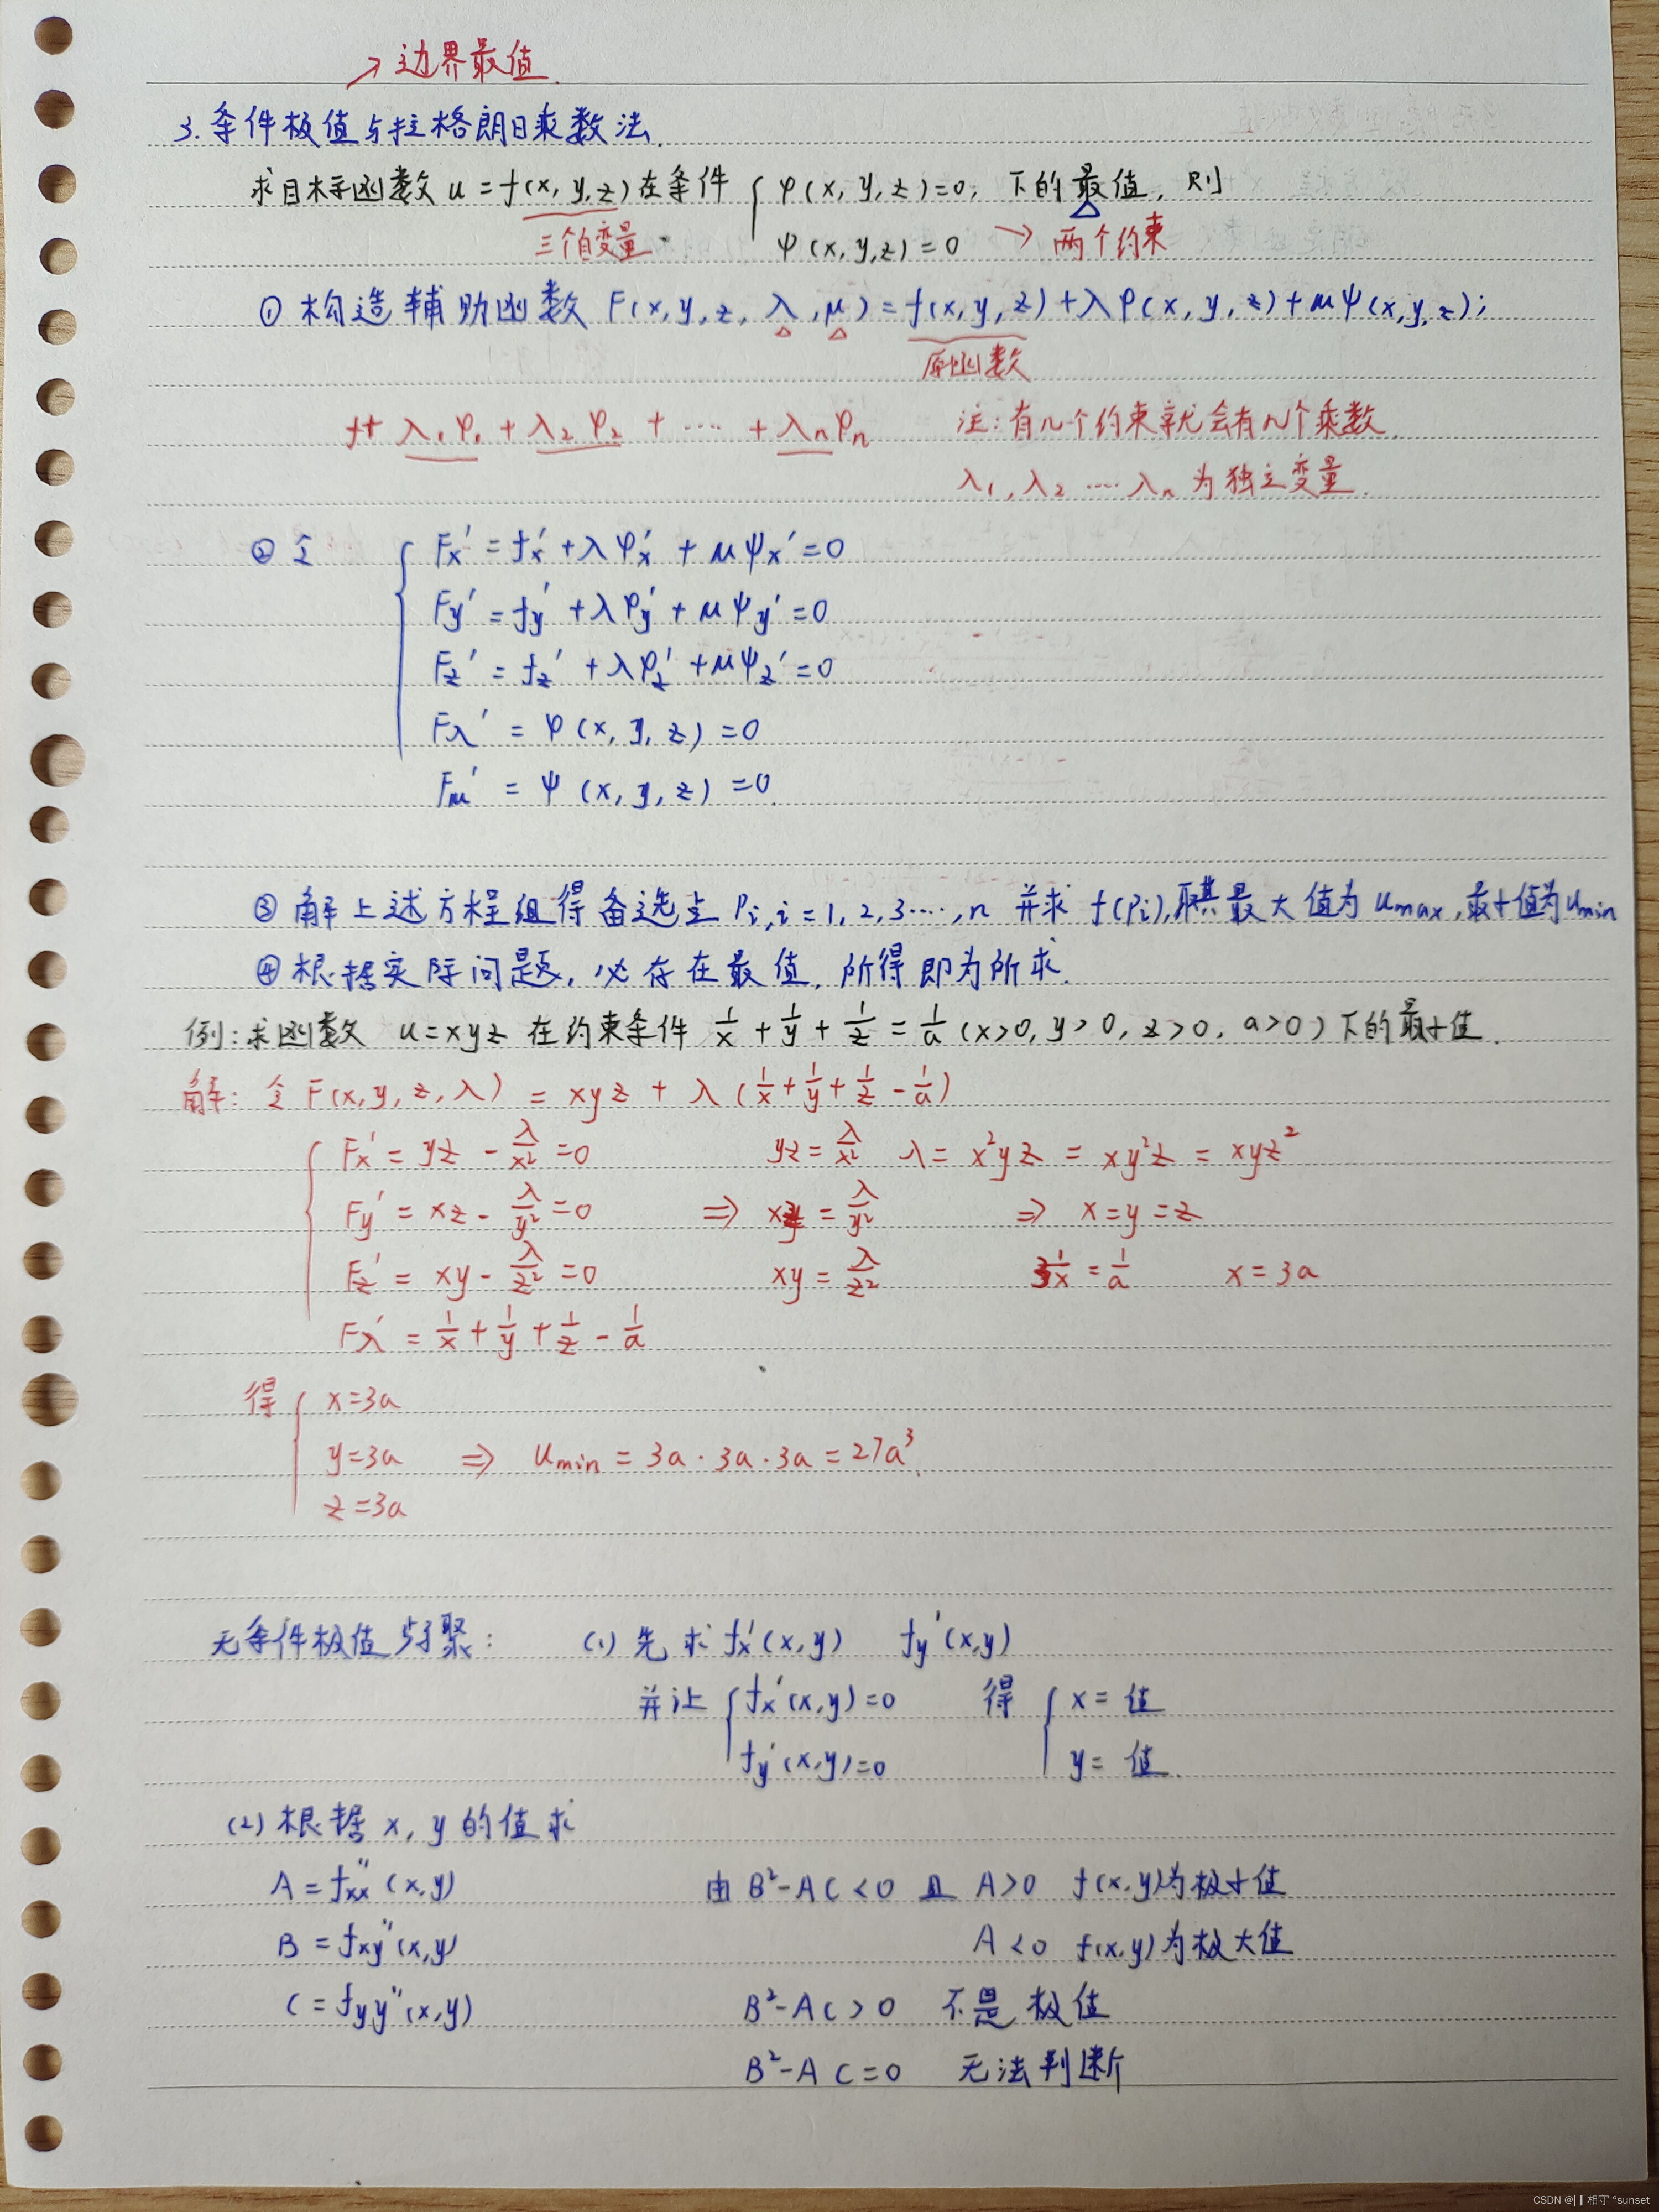 → 边界最值.
3. 条件极值与拉格朗日乘数法.
求目标函数 u = f(x, y, z) 在条件 { φ(x, y, z)=0; 下的最值, 则
三个自变量 ψ(x, y, z)=0 → 两个约束
① 构造辅助函数 F(x, y, z, λ, μ) = f(x, y, z) + λφ(x, y, z) + μψ(x, y, z);
原函数
f + λ₁φ₁ + λ₂φ₂ + ···· + λₙφₙ 注: 有几个约束就会有几个乘数.
λ₁, λ₂ ···· λₙ 为独立变量.
② 令 { Fx' = fx' + λφx' + μψx' = 0
Fy' = fy' + λφy' + μψy' = 0
Fz' = fz' + λφz' + μψz' = 0
Fλ' = φ(x, y, z) = 0
Fμ' = ψ(x, y, z) = 0.
③ 解上述方程组得备选点 Pi, i = 1, 2, 3····, n 并求 f(Pi), 取其最大值为 umax, 最小值为 umin
④ 根据实际问题, 必存在最值, 所得即为所求.
例: 求函数 u = xyz 在约束条件 1/x + 1/y + 1/z = 1/a (x>0, y>0, z>0, a>0) 下的最小值.
解: 令 F(x, y, z, λ) = xyz + λ(1/x + 1/y + 1/z - 1/a)
{ Fx' = yz - λ/x² = 0 yz = λ/x² λ = x²yz = xy²z = xyz²
Fy' = xz - λ/y² = 0 ⇒ xz = λ/y² ⇒ x = y = z
Fz' = xy - λ/z² = 0 xy = λ/z² 3 1/x = 1/a x = 3a
Fλ' = 1/x + 1/y + 1/z - 1/a
得 { x=3a
y=3a ⇒ umin = 3a · 3a · 3a = 27a³.
z=3a
无条件极值步聚: (1) 先求 fx'(x, y) fy'(x, y)
并让 { fx'(x, y)=0 得 { x = 值
fy'(x, y)=0 y = 值.
(2) 根据 x, y 的值求
A = fxx''(x, y) 由 B²-AC<0 且 A>0 f(x, y)为极小值
B = fxy''(x, y) A<0 f(x, y)为极大值
C = fyy''(x, y) B²-AC>0 不是极值
B²-AC=0 无法判断
CSDN @| ▎相守 °sunset